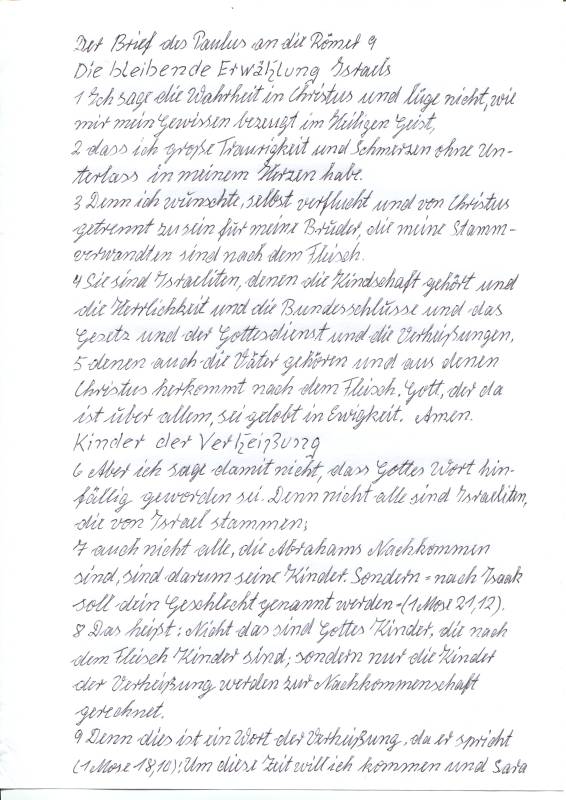 Der Brief des Paulus an die Römer 9
Die bleibende Erwählung Israels
1 Ich sage die Wahrheit in Christus und lüge nicht, wie
mir mein Gewissen bezeugt im Heiligen Geist,
2 dass ich große Traurigkeit und Schmerzen ohne Un-
terlass in meinem Herzen habe.
3 Denn ich wünschte, selbst verflucht und von Christus
getrennt zu sein für meine Brüder, die meine Stamm-
verwandten sind nach dem Fleisch.
4 Sie sind Israeliten, denen die Kindschaft gehört und
die Herrlichkeit und die Bundesschlüsse und das
Gesetz und der Gottesdienst und die Verheißungen,
5 denen auch die Väter gehören und aus denen
Christus herkommt nach dem Fleisch. Gott, der da
ist über allem, sei gelobt in Ewigkeit. Amen.
Kinder der Verheißung
6 Aber ich sage damit nicht, dass Gottes Wort hin-
fällig geworden sei. Denn nicht alle sind Israeliten,
die von Israel stammen;
7 auch nicht alle, die Abrahams Nachkommen
sind, sind darum seine Kinder. Sondern =nach Isaak
soll dein Geschlecht genannt werden=(1 Mose 21,12).
8 Das heißt: Nicht das sind Gottes Kinder, die nach
dem Fleisch Kinder sind; sondern nur die Kinder
der Verheißung werden zur Nachkommenschaft
gerechnet.
9 Denn dies ist ein Wort der Verheißung, da er spricht
(1 Mose 18,10): Um diese Zeit will ich kommen und Sara